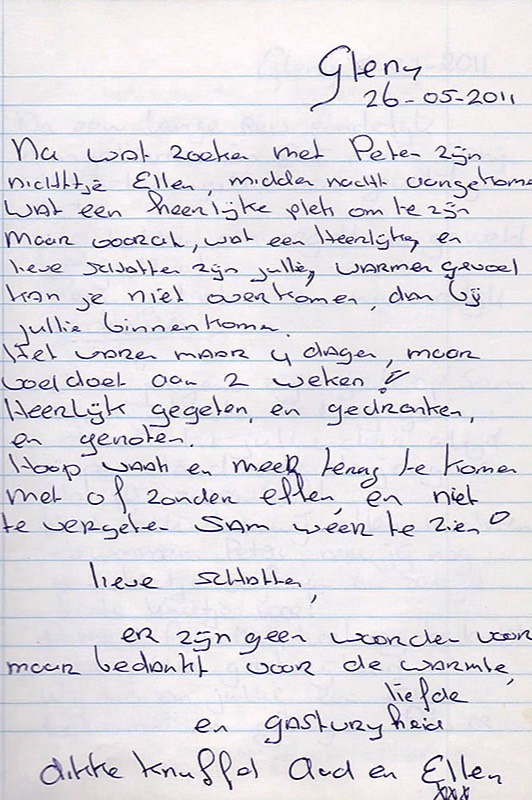 Gleny
26-05-2011
Na wat zoeken met Peter zijn
nichtje Ellen, midden nacht aangekome
Wat een heerlijke plek om te zijn
maar vooral, wat een Heerlijke, en
lieve schatten zijn jullie, warmer gevoel
kan je niet overkomen, dan bij
jullie binnenkomen.
Het waren maar 4 dagen, maar
voel doet aan 2 weken!
Heerlijk gegeten, en gedronken,
en genoten.
Hoop vaak en meer terug te komen
met of zonder ellen, en niet
te vergeten Sam weer te zien
lieve schatten,
er zijn geen woorden voor
maar bedankt voor de warmte,
liefde
en gastvryheid
dikke knuffel Aad en Ellen
xxx